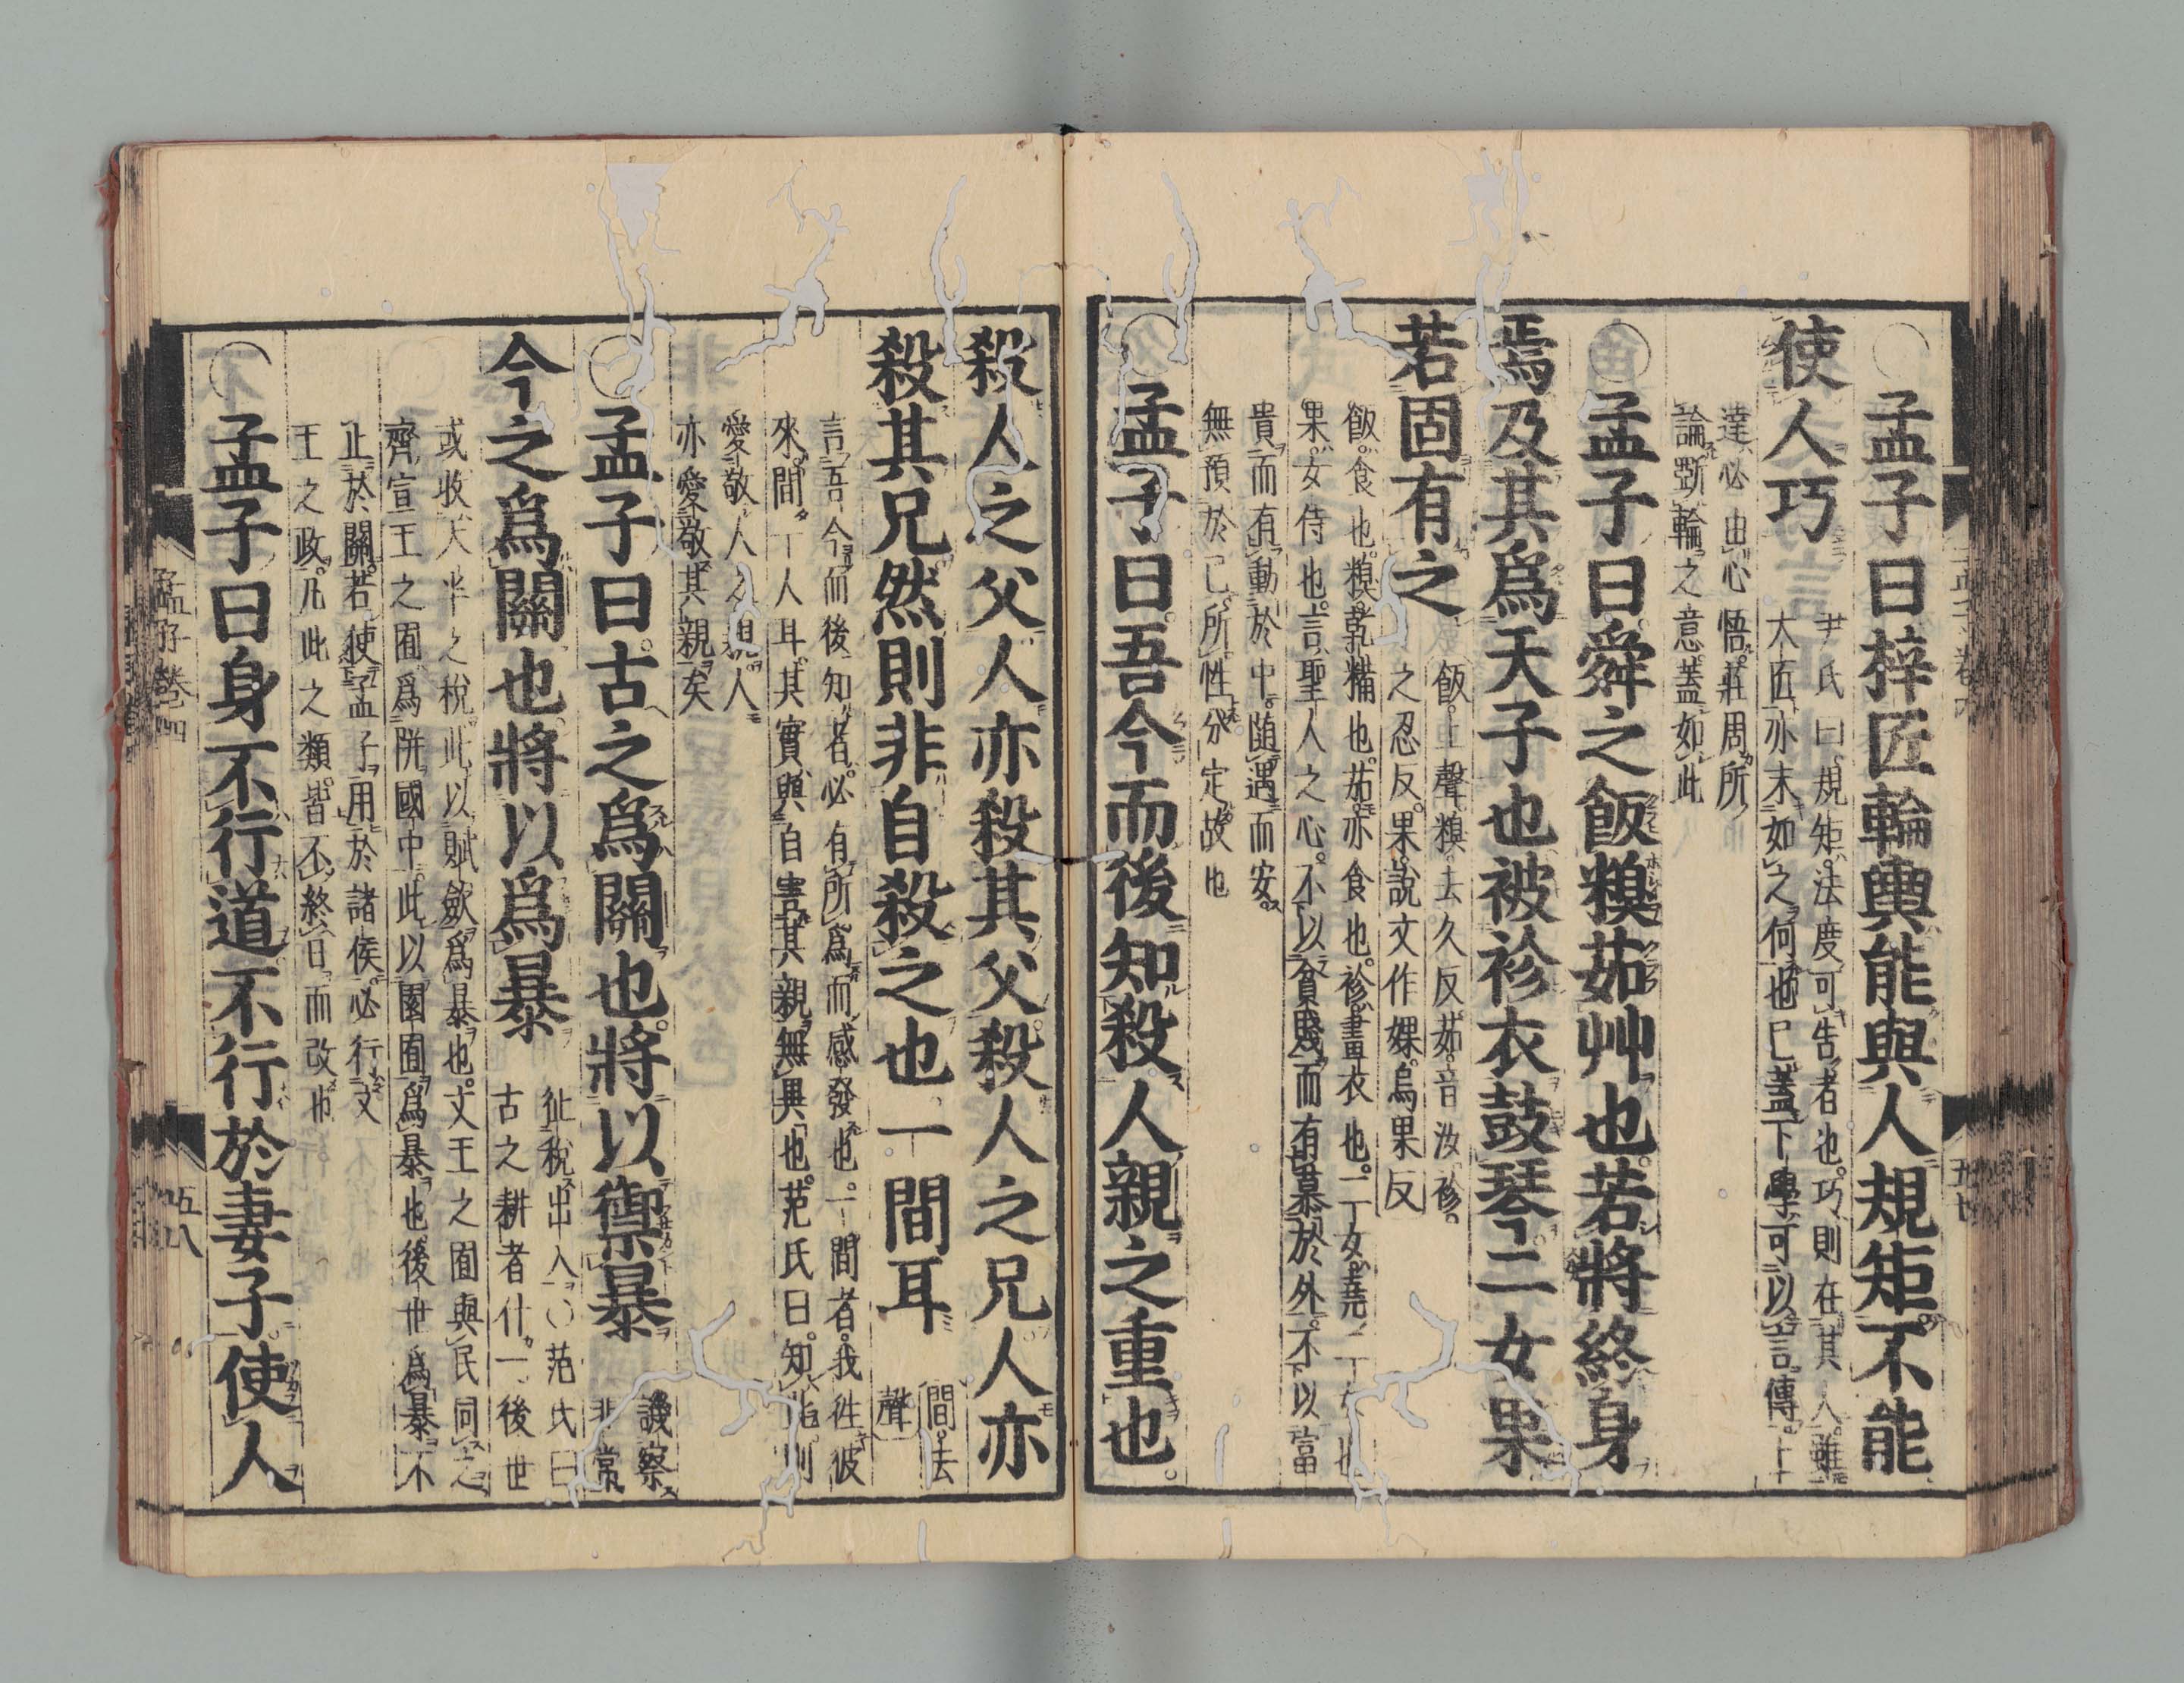 ○孟子曰梓匠輪輿能與人規矩不能
使人巧
尹氏曰規矩法度可告者也巧則在其人雖
大匠亦末如之何也已蓋下學可以言傳上
達必由心悟莊周所
論斲輪之意蓋如此
○孟子曰舜之飯糗茹艸也若將終身
焉及其爲天子也被袗衣鼓琴二女果
若固有之
飯上聲糗去久反茹音汝袗
之忍反果說文作婐烏果反
飯食也糗乾糒也茹亦食也袗畫衣也二女堯二女也
果女侍也言聖人之心不以貧賤而有慕於外不以富
貴而有動於中隨遇而安
無預於己所性分定故也
○孟子曰吾今而後知殺人親之重也
殺人之父人亦殺其父殺人之兄人亦
殺其兄然則非自殺之也一間耳
間去
聲
言吾今而後知者必有所爲而感發也一間者我往彼
來間一人耳其實與自害其親無異也范氏曰知此則
愛敬人之親人
亦愛敬其親矣
○孟子曰古之爲關也將以禦暴
譏察
非常
今之爲關也將以爲暴
征稅出入○范氏曰
古之耕者什一後世
或收大半之稅此以賦斂爲暴也文王之囿與民同之
齊宣王之囿爲阱國中此以園囿爲暴也後世爲暴不
止於關若使孟子用於諸侯必行文
王之政凡此之類皆不終日而改也
○孟子曰身不行道不行於妻子使人
孟子卷四
五八